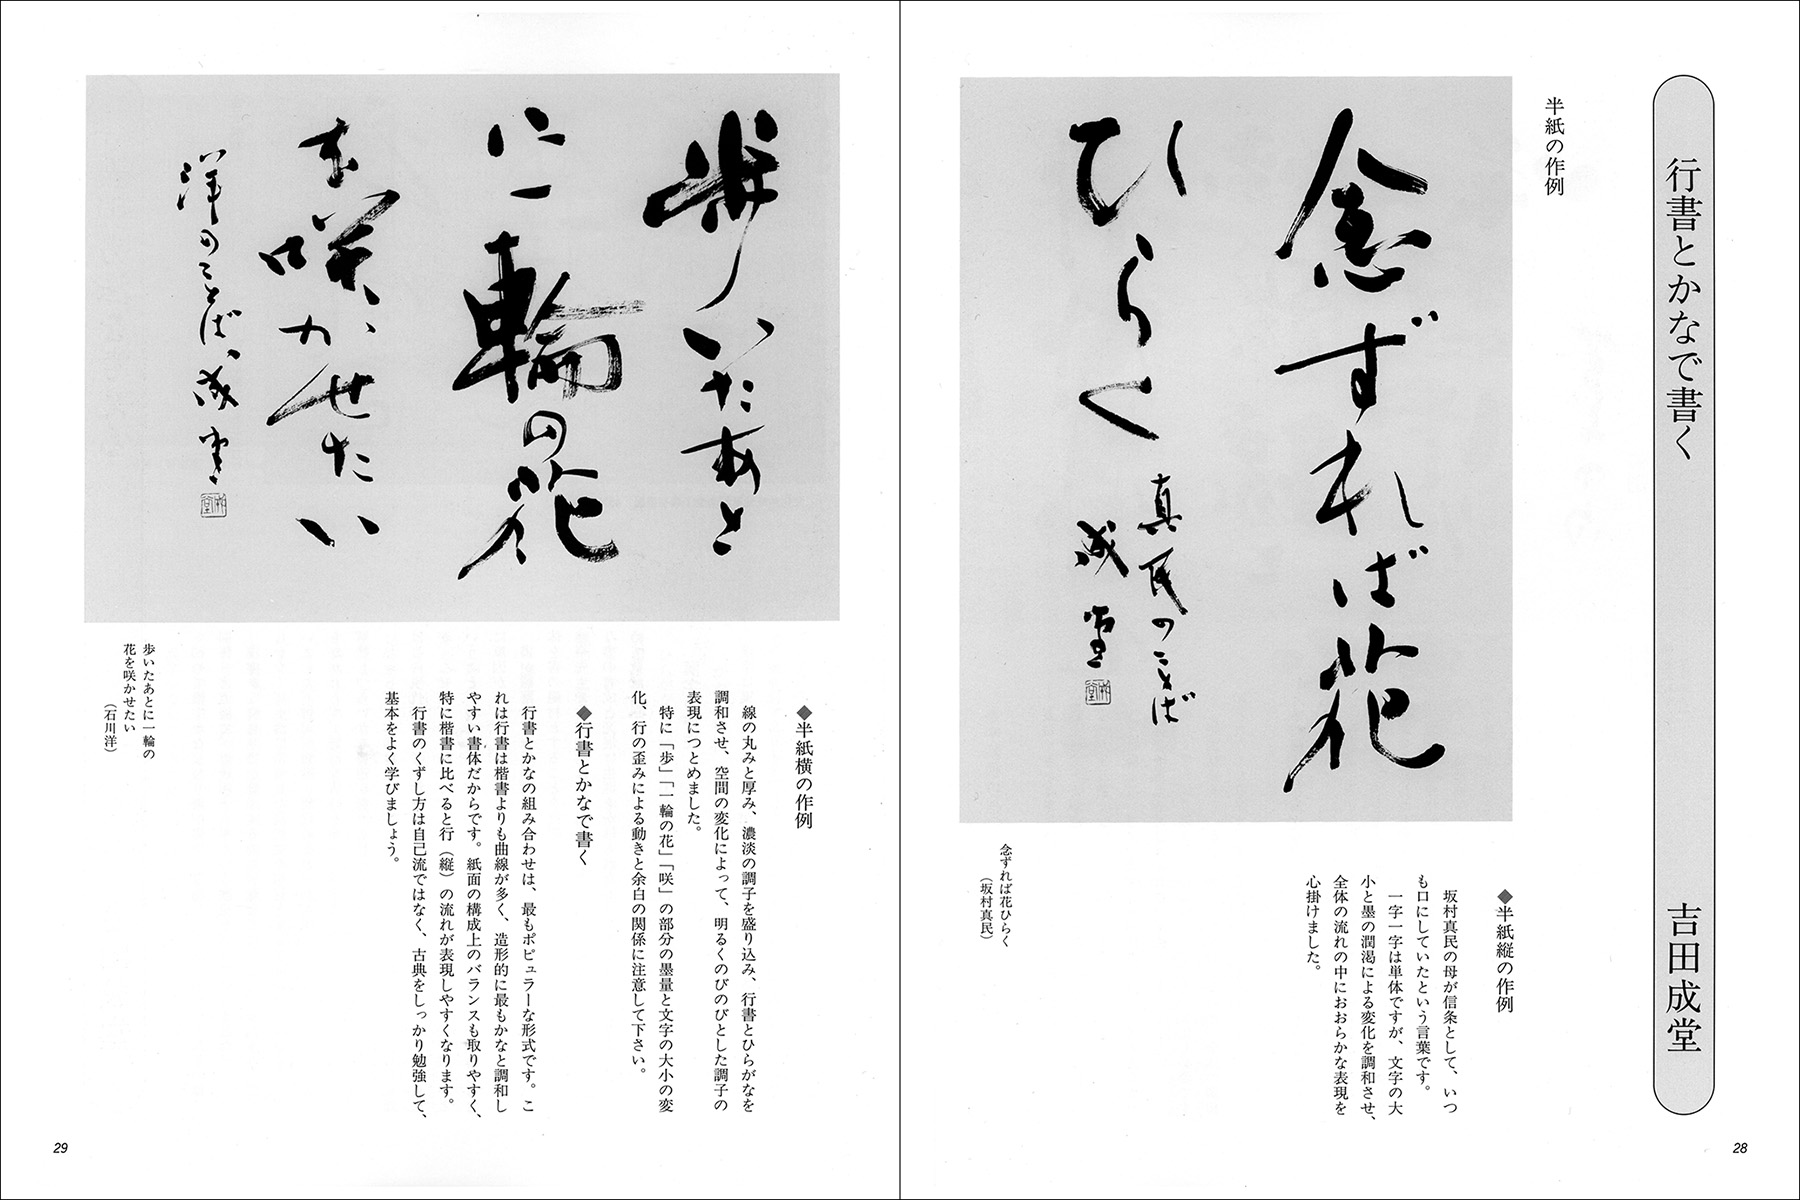 行書とかなで書く　吉田成堂
半紙の作例
念ずれば花
ひらく
真民のことば
成堂
念ずれば花ひらく
（坂村真民）
◆半紙縦の作例
坂村真民の母が信条として、いつ
も口にしていたという言葉です。
一字一字は単体ですが、文字の大
小と墨の潤渇による変化を調和させ、
全体の流れの中におおらかな表現を
心掛けました。
28
歩いたあと
に一輪の花
を咲かせたい
洋のことば 成堂
歩いたあとに一輪の
花を咲かせたい
（石川洋）
◆半紙横の作例
線の丸みと厚み、濃淡の調子を盛り込み、行書とひらがなを
調和させ、空間の変化によって、明るくのびのびとした調子の
表現につとめました。
特に「歩」「一輪の花」「咲」の部分の墨量と文字の大小の変
化、行の歪みによる動きと余白の関係に注意して下さい。
◆行書とかなで書く
行書とかなの組み合わせは、最もポピュラーな形式です。こ
れは行書は楷書よりも曲線が多く、造形的に最もかなと調和し
やすい書体だからです。紙面の構成上のバランスも取りやすく、
特に楷書に比べると行（縦）の流れが表現しやすくなります。
行書のくずし方は自己流ではなく、古典をしっかり勉強して、
基本をよく学びましょう。
29